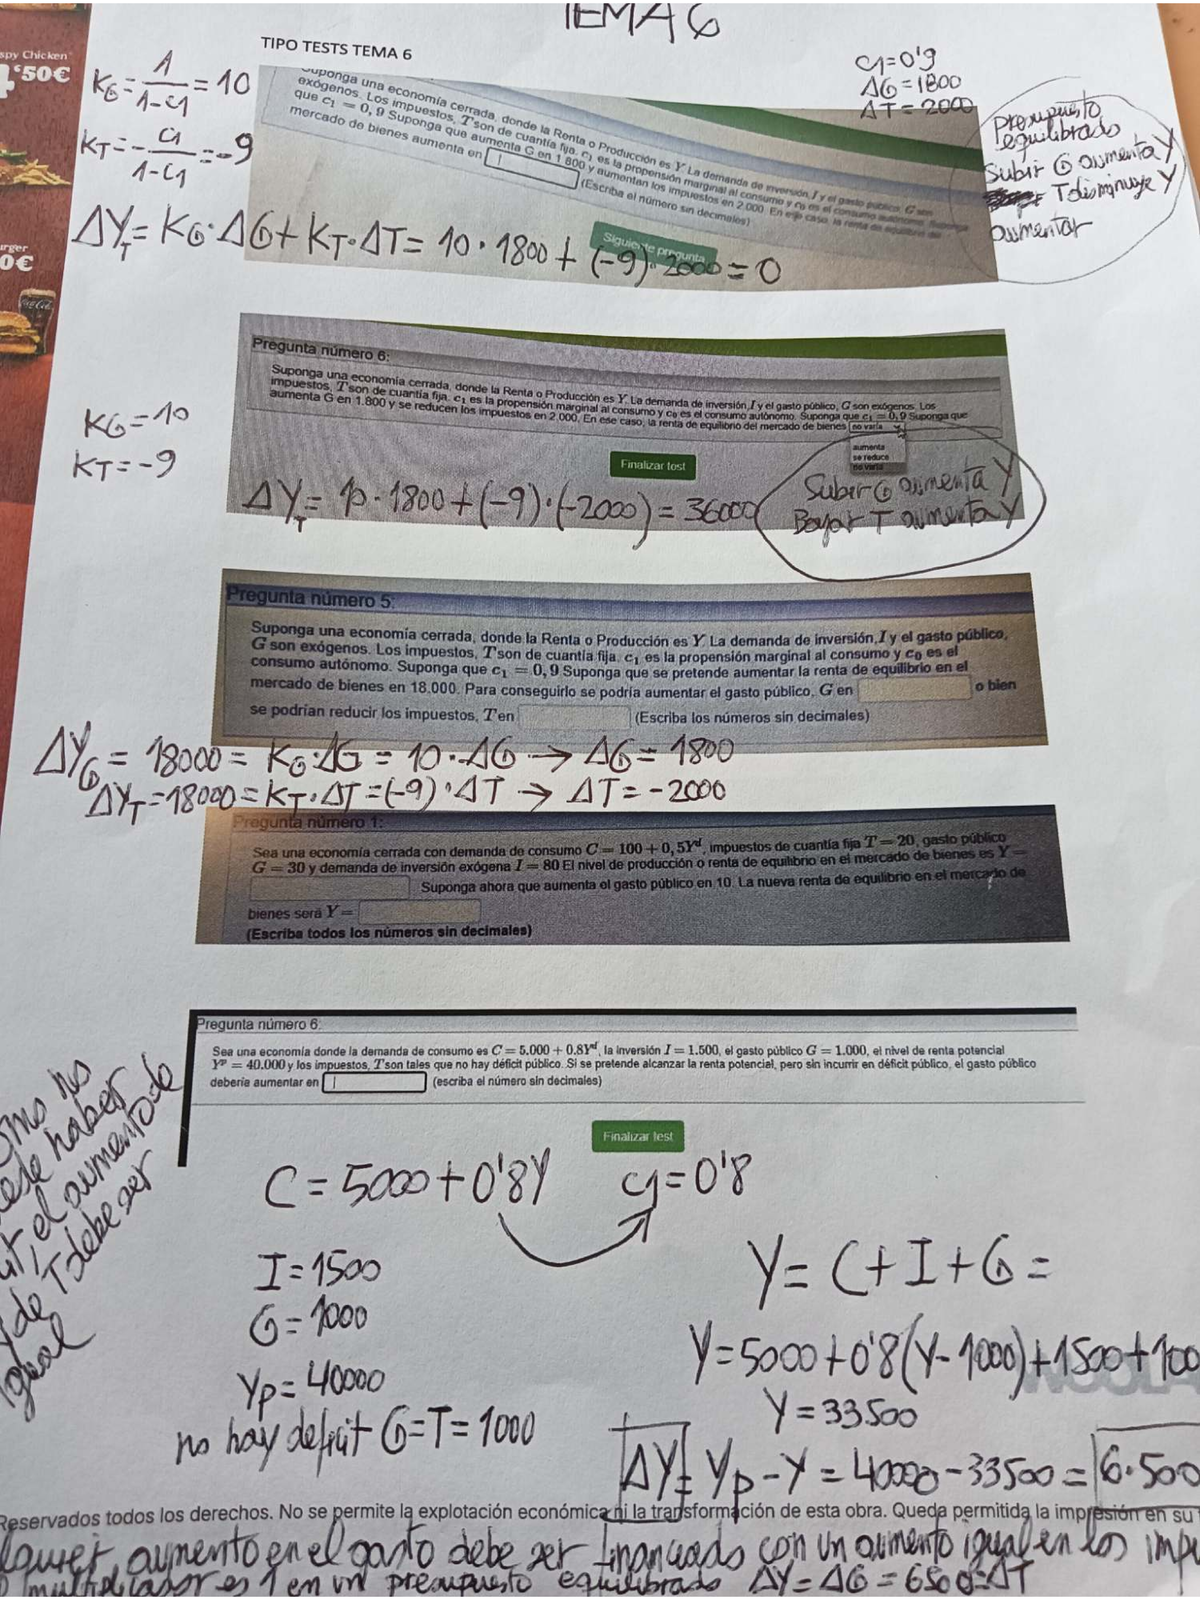 TEMA 6
TIPO TESTS TEMA 6
spy Chicken
4'50€
urger
0€
Coca-Cola
KG = 1/1-c1 = 10
KT = - c1/1-c1 = -9
c1=0'9
ΔG=1800
ΔT=2000
Presupuesto
equilibrado
Subir G aumenta Y
T disminuye Y
aumentar
Suponga una economía cerrada, donde la Renta o Producción es Y. La demanda de inversión, I y el gasto público, G son
exógenos. Los impuestos, T son de cuantía fija. c1 es la propensión marginal al consumo y c0 es el consumo autónomo. Suponga
que c1 = 0,9 Suponga que aumenta G en 1.800 y aumentan los impuestos en 2.000. En ese caso, la renta de equilibrio del
mercado de bienes aumenta en (Escriba el número sin decimales)
Siguiente pregunta
ΔYT= KG·ΔG+ KT·ΔT= 10·1800+(-9)·2000=0
Pregunta número 6:
Suponga una economía cerrada, donde la Renta o Producción es Y. La demanda de inversión, I y el gasto público, G son exógenos. Los
impuestos, T son de cuantía fija. c1 es la propensión marginal al consumo y c0 es el consumo autónomo. Suponga que c1 = 0,9 Suponga que
aumenta G en 1.800 y se reducen los impuestos en 2.000. En ese caso, la renta de equilibrio del mercado de bienes no varía
aumenta
se reduce
no varía
Finalizar test
KG=10
KT=-9
ΔYT= 10·1800+(-9)·(-2000)=36000
Subir G aumenta Y
Bajar T aumenta Y
Pregunta número 5:
Suponga una economía cerrada, donde la Renta o Producción es Y. La demanda de inversión, I y el gasto público,
G son exógenos. Los impuestos, T son de cuantía fija. c1 es la propensión marginal al consumo y c0 es el
consumo autónomo. Suponga que c1 = 0,9 Suponga que se pretende aumentar la renta de equilibrio en el
mercado de bienes en 18.000. Para conseguirlo se podría aumentar el gasto público, G en o bien
se podrían reducir los impuestos, T en (Escriba los números sin decimales)
ΔYG = 18000 = KG·ΔG = 10·ΔG → ΔG = 1800
ΔYT=18000=KT·ΔT=(-9)·ΔT → ΔT=-2000
Pregunta número 1:
Sea una economía cerrada con demanda de consumo C = 100 + 0,5Yd, impuestos de cuantía fija T = 20, gasto público
G = 30 y demanda de inversión exógena I = 80 El nivel de producción o renta de equilibrio en el mercado de bienes es Y =
Suponga ahora que aumenta el gasto público en 10. La nueva renta de equilibrio en el mercado de
bienes será Y =
(Escriba todos los números sin decimales)
Pregunta número 6:
Sea una economía donde la demanda de consumo es C = 5.000 + 0.8Yd, la inversión I = 1.500, el gasto público G = 1.000, el nivel de renta potencial
Yp = 40.000 y los impuestos, T son tales que no hay déficit público. Si se pretende alcanzar la renta potencial, pero sin incurrir en déficit público, el gasto público
debería aumentar en (escriba el número sin decimales)
Finalizar test
ómo no
ede haber
it, el aumento de
y de T debe ser
igual
C=5000+0'8Y c1=0'8
I=1500
G=1000
Yp=40000
no hay deficit G=T=1000
Y= C+I+G=
Y=5000+0'8(Y-1000)+1500+100
Y=33500
ΔY= Yp-Y=40000-33500=6.500
Reservados todos los derechos. No se permite la explotación económica ni la transformación de esta obra. Queda permitida la impresión en su
lquier aumento en el gasto debe ser financiado con un aumento igual en los impu
multiplicador es 1 en un presupuesto equilibrado ΔY=ΔG=6500=ΔT